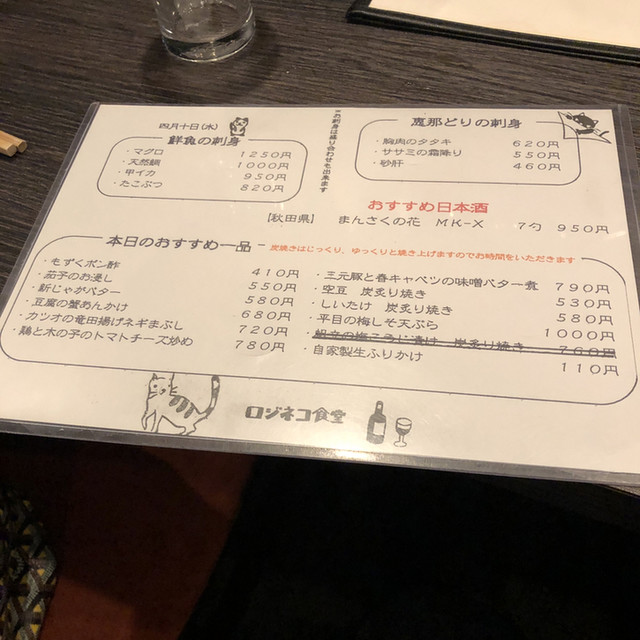 四月十日(水)
鮮魚の刺身
・マグロ 1250円
・天然鯛 1000円
・甲イカ 950円
・たこぶつ 820円
※お刺身は盛り合わせも出来ます
恵那どりの刺身
・胸肉のタタキ 620円
・ササミの霜降り 550円
・砂肝 460円
おすすめ日本酒
【秋田県】 まんさくの花 MK-X 7勺 950円
本日のおすすめ一品 - 炭焼きはじっくり、ゆっくりと焼き上げますのでお時間をいただきます
・もずくポン酢 410円
・茄子のお浸し 550円
・新じゃがバター 580円
・豆腐の蟹あんかけ 680円
・カツオの竜田揚げネギまぶし 720円
・鶏と木の子のトマトチーズ炒め 780円
・三元豚と春キャベツの味噌バター煮 790円
・空豆 炭炙り焼き 530円
・しいたけ 炭炙り焼き 580円
・平目の梅しそ天ぷら 1000円
・帆立の梅こうじ漬け 炭炙り焼き 760円
・自家製生ふりかけ 110円
ロジネコ食堂